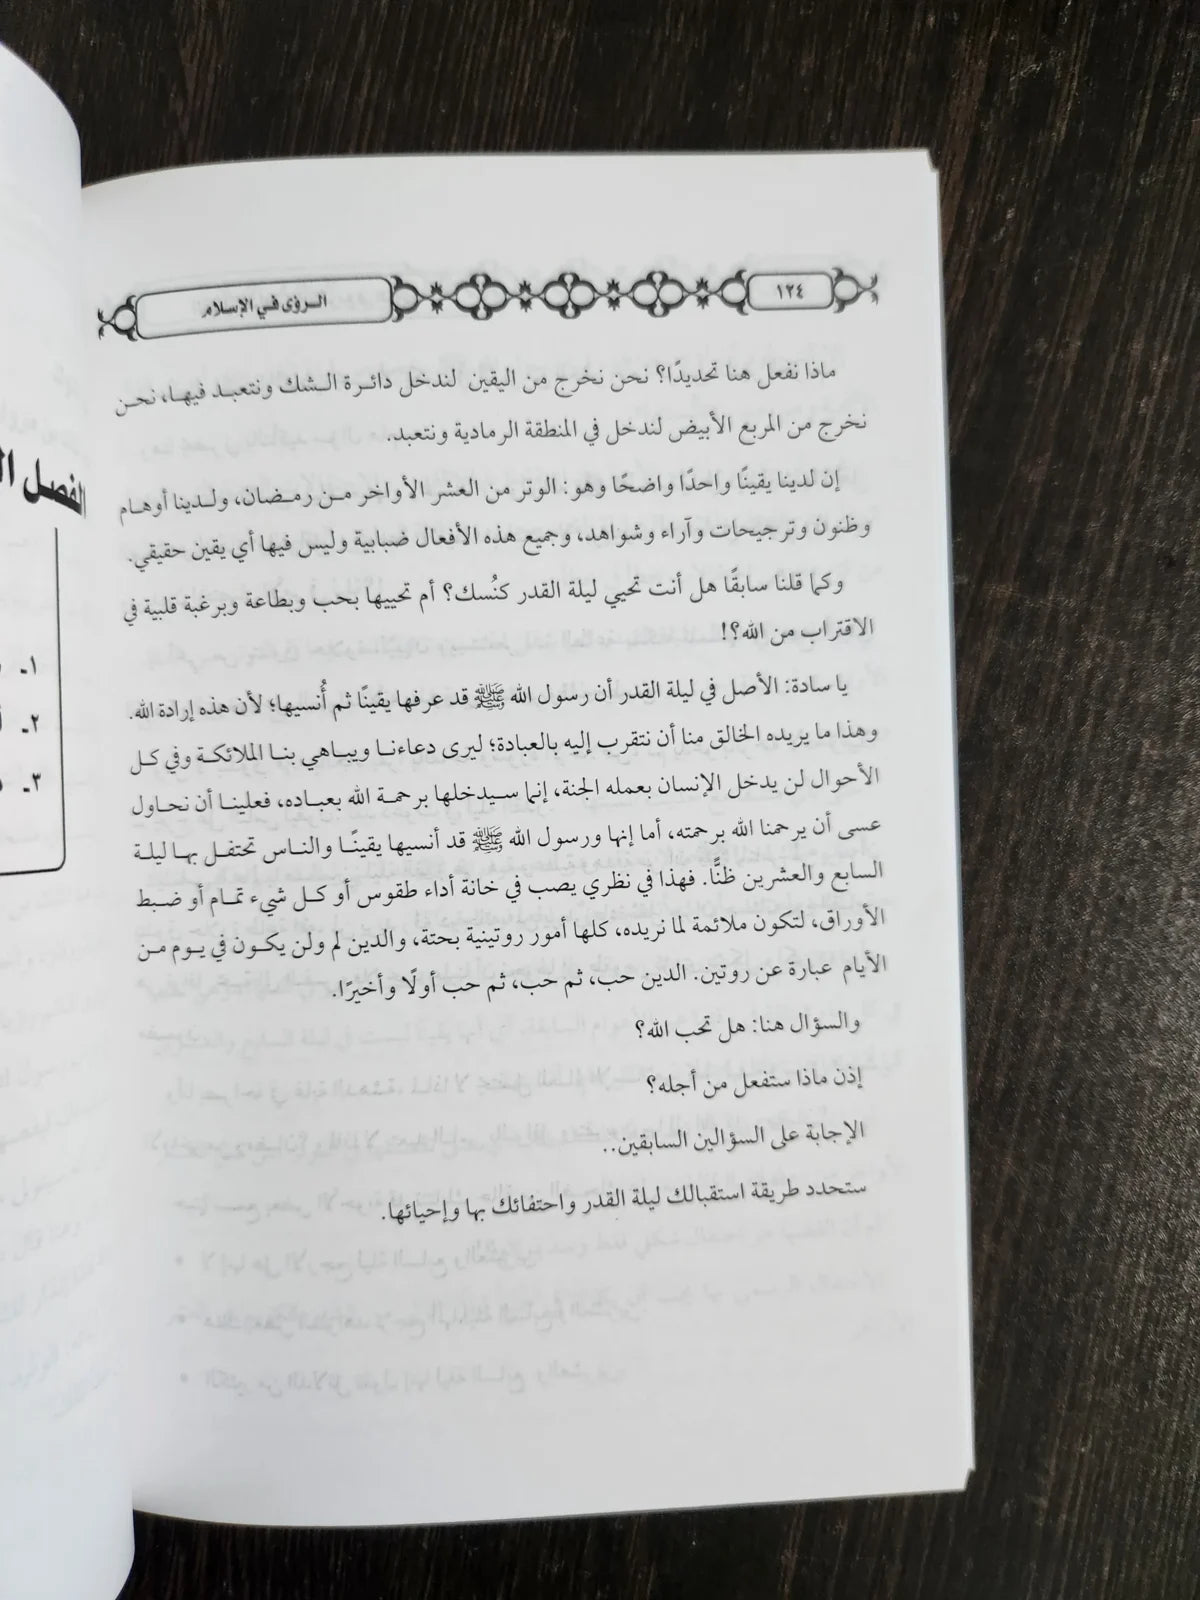 ١٢٤
الرؤى في الإسلام
ماذا نفعل هنا تحديدًا؟ نحن نخرج من اليقين لندخل دائرة الشك ونتعبد فيها، نحن
نخرج من المربع الأبيض لندخل في المنطقة الرمادية ونتعبد.
إن لدينا يقينًا واحدًا واضحًا وهو: الوتر من العشر الأواخر من رمضان، ولدينا أوهام
وظنون وترجيحات وآراء وشواهد، وجميع هذه الأفعال ضبابية وليس فيها أي يقين حقيقي.
وكما قلنا سابقًا هل أنت تحيي ليلة القدر كنُسك؟ أم تحييها بحب وبطاعة وبرغبة قلبية في
الاقتراب من الله؟!
يا سادة: الأصل في ليلة القدر أن رسول الله ﷺ قد عرفها يقينًا ثم أُنسيها؛ لأن هذه إرادة الله.
وهذا ما يريده الخالق منا أن نتقرب إليه بالعبادة؛ ليرى دعاءنا ويباهي بنا الملائكة وفي كل
الأحوال لن يدخل الإنسان بعمله الجنة، إنما سيدخلها برحمة الله بعباده، فعلينا أن نحاول
عسى أن يرحمنا الله برحمته، أما إنها ورسول الله ﷺ قد أنسيها يقينًا والناس تحتفل بها ليلة
السابع والعشرين ظنًّا. فهذا في نظري يصب في خانة أداء طقوس أو كل شيء تمام أو ضبط
الأوراق، لتكون ملائمة لما نريده، كلها أمور روتينية بحتة، والدين لم ولن يكون في يوم من
الأيام عبارة عن روتين. الدين حب، ثم حب، ثم حب أولًا وأخيرًا.
والسؤال هنا: هل تحب الله؟
إذن ماذا ستفعل من أجله؟
الإجابة على السؤالين السابقين..
ستحدد طريقة استقبالك ليلة القدر واحتفائك بها وإحيائها.
الفصل
١ـ
٢ـ
٣ـ